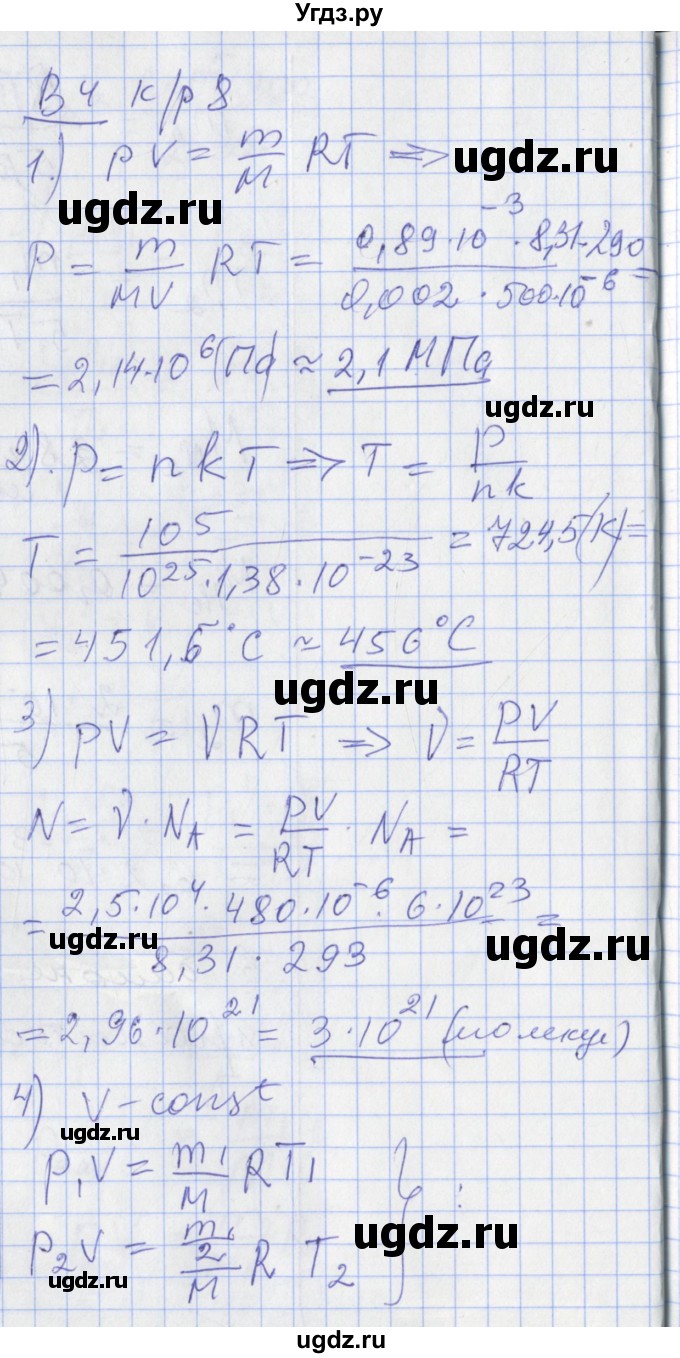 Угдз.ру
В 4 к/р 8
1.) pV = m/M RT =>
ugdz.ru
P = m/MV RT = 0,89·10^-3 · 8,31·290 / 0,002 · 500·10^-6 =
= 2,14·10^6 (Па) ≈ 2,1 МПа
ugdz.ru
2). P = nkT => T = P/nk
T = 10^5 / 10^25 · 1,38 · 10^-23 = 724,5 (К) =
= 451,5 °C ≈ 456 °C
ugdz.ru
3) PV = νRT => ν = PV/RT
N = ν · N_A = PV/RT · N_A =
= 2,5·10^4 · 480·10^-6 · 6·10^23 / 8,31 · 293 =
ugdz.ru
ugdz.ru
= 2,96·10^21 = 3·10^21 (молекул)
4) V - const
ugdz.ru
P₁V = m₁/M RT₁
ugdz.ru
P₂V = m₁/2/M R T₂ } :
ugdz.ru
ugdz.ru